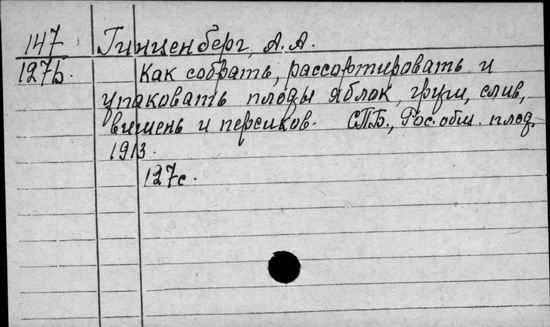 147 Гинценберг, А.А.
127b. Как собрать, рассортировать и
упаковать плоды яблок, груш, слив,
вишень и персиков. СПБ., Рос. общ. плод.
1913.
127с.